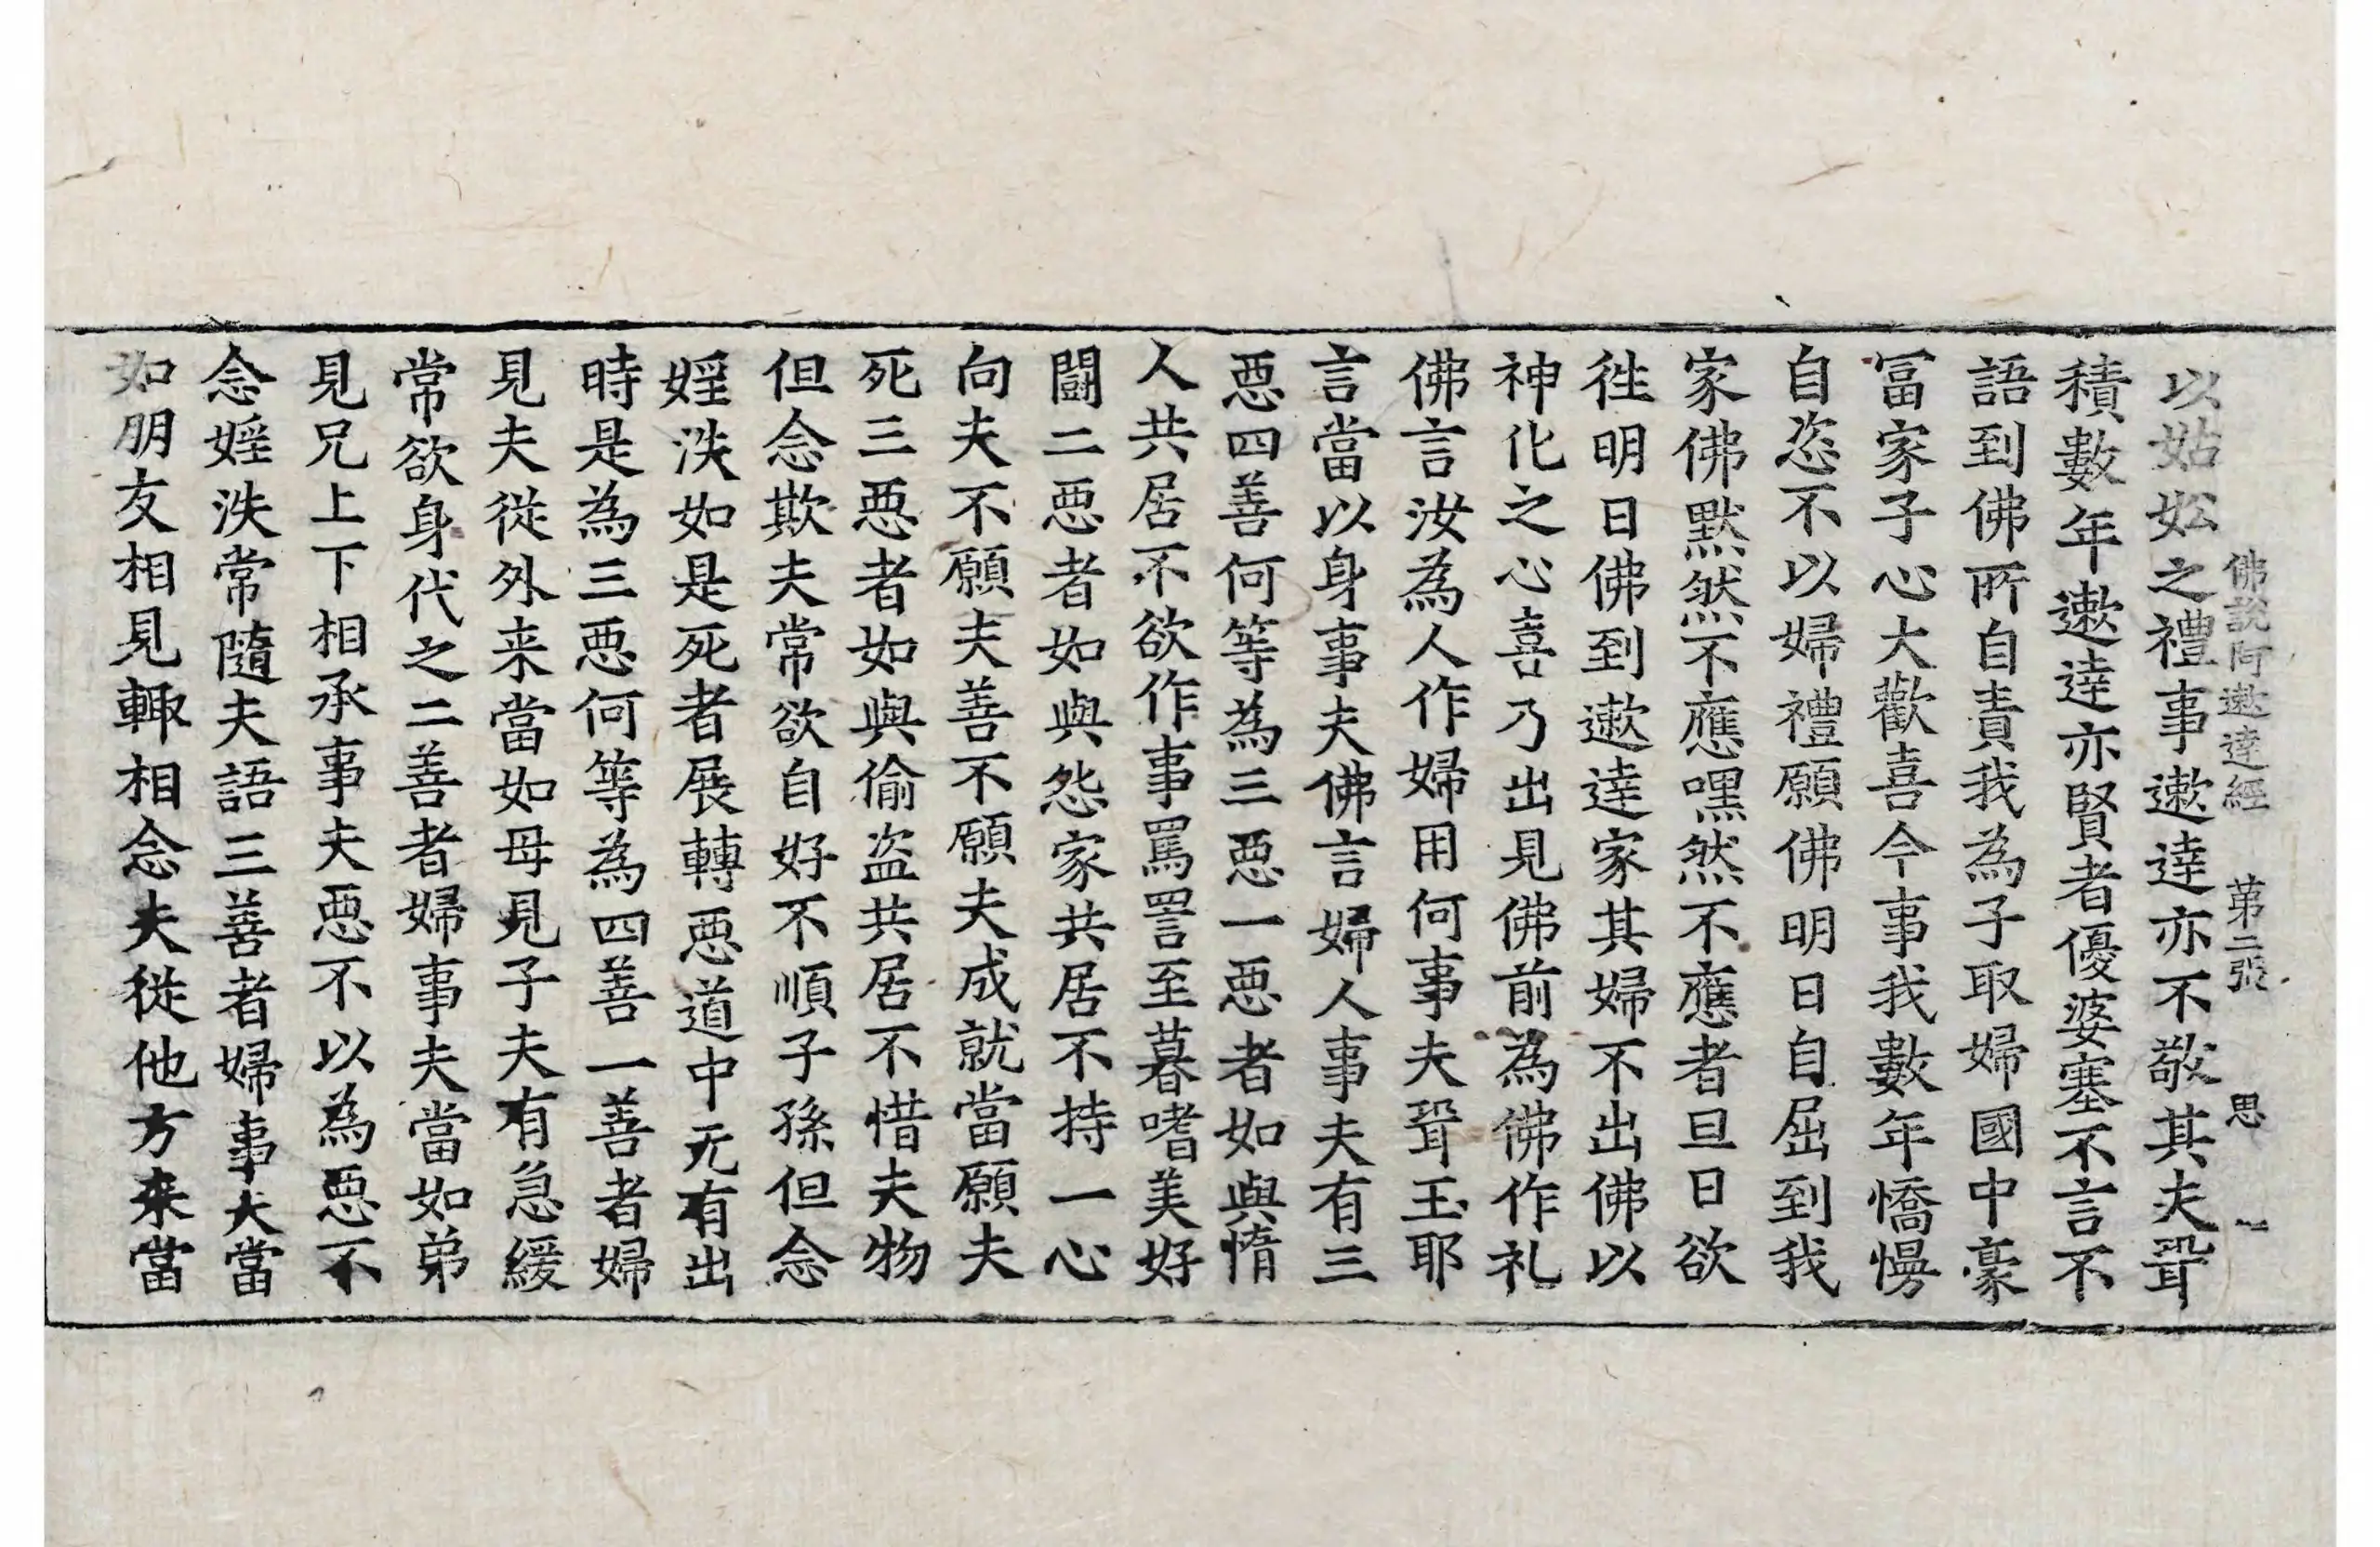 佛說阿遬達經 第二張 思
以姑妐之禮事遬達亦不敬其夫聟
積數年遬達亦賢者優婆塞不言不
語到佛所自責我為子取婦國中豪
冨家子心大歡喜今事我數年憍慢
自恣不以婦禮願佛明日自屈到我
家佛默然不應嘿然不應者旦日欲
徃明日佛到遬達家其婦不出佛以
神化之心喜乃出見佛前為佛作礼
佛言汝為人作婦用何事夫聟玉耶
言當以身事夫佛言婦人事夫有三
惡四善何等為三惡一惡者如與惰
人共居不欲作事罵詈至暮嗜美好
鬪二惡者如與怨家共居不持一心
向夫不願夫善不願夫成就當願夫
死三惡者如與偷盜共居不惜夫物
但念欺夫常欲自好不順子孫但念
婬泆如是死者展轉惡道中无有出
時是為三惡何等為四善一善者婦
見夫從外来當如母見子夫有急緩
常欲身代之二善者婦事夫當如弟
見兄上下相承事夫惡不以為惡不
念婬泆常隨夫語三善者婦事夫當
如朋友相見輙相念夫從他方来當